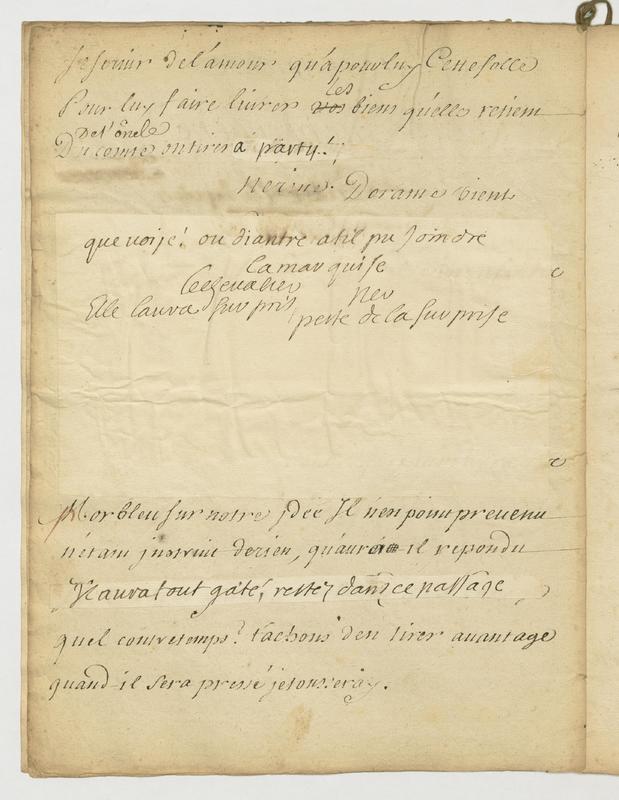 Se servir de l'amour qu'a pour luy Cette folle
Pour luy faire livrer les biens qu'elle retient
De l'oncle
Du comte on tirera party!
Nerine. Dorante vient
que voije! ou diantre atil pu joindre
la marquise
le chevalier
Elle l'aura surpris
Ner
peste de la surprise
Morbleu sur notre jdée Il n'en point prevenu
n'etant jnstruit de rien, qu'aura il repondu
Il aura tout gâté, restez dans ce passage
quel contretemps? tachons d'en tirer avantage
quand il sera pressé je tousseray.